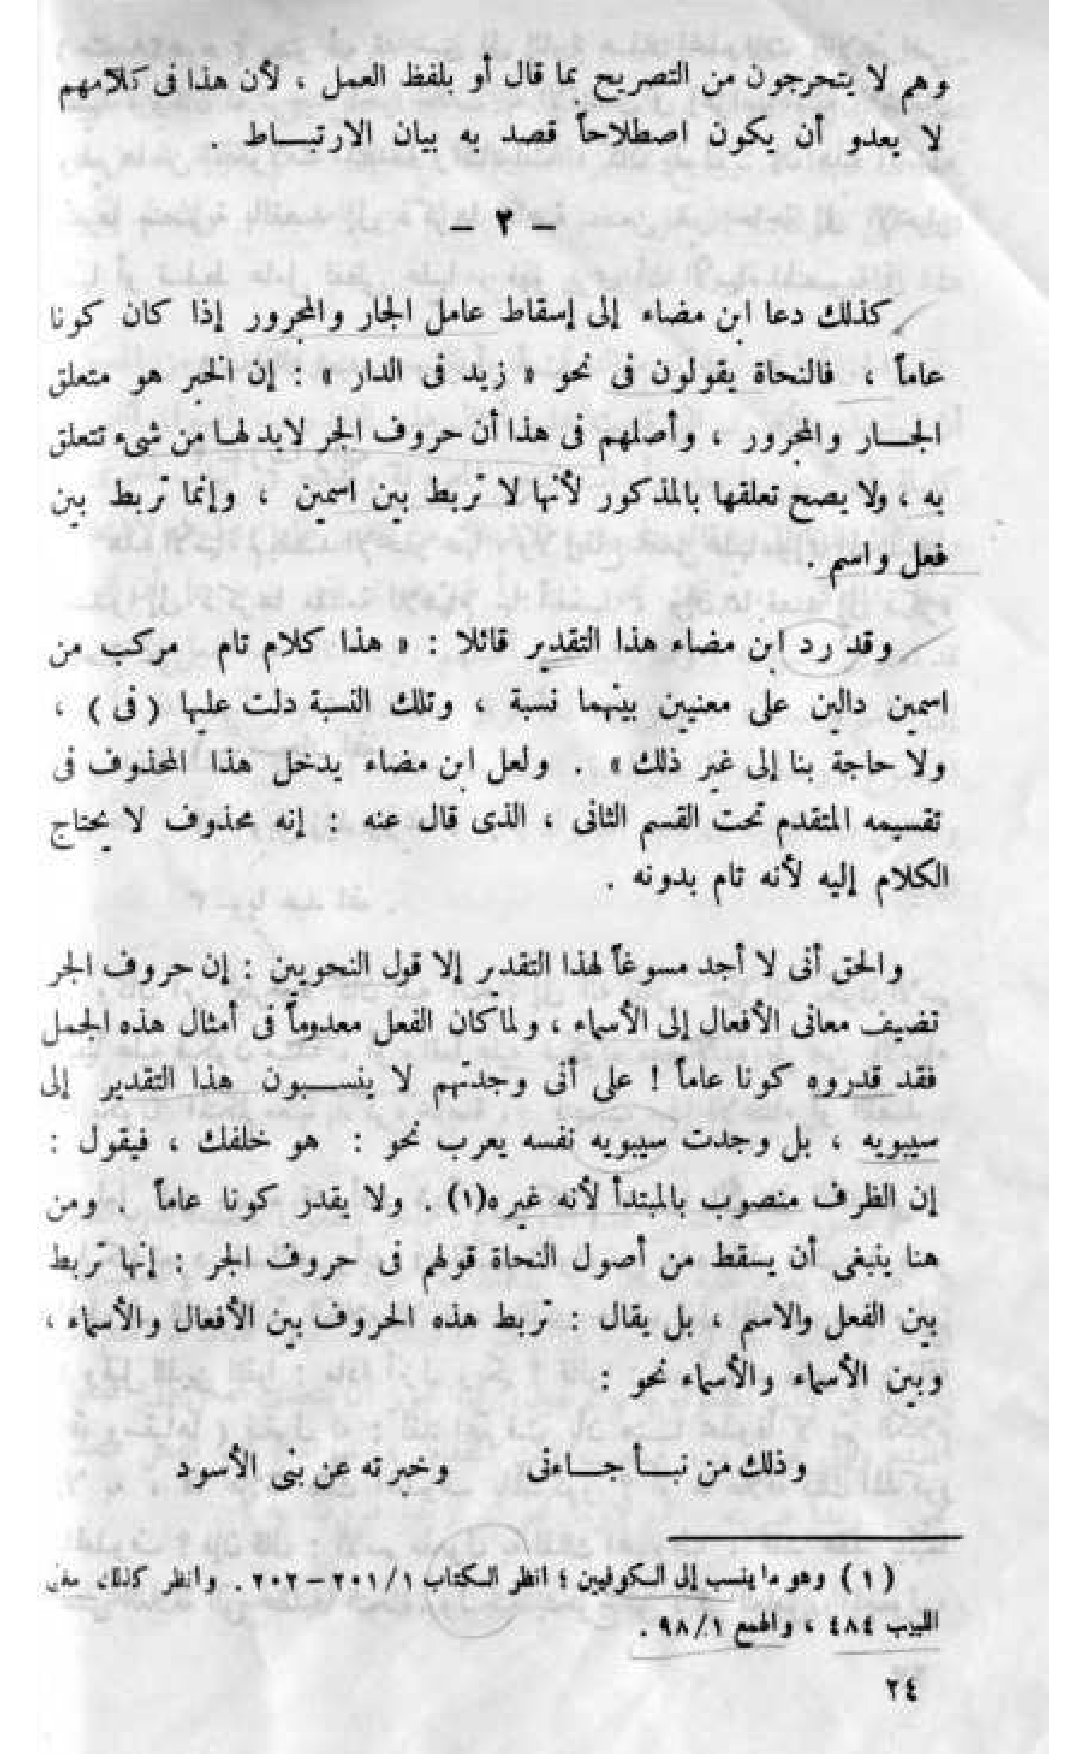 وهم لا يتحرجون من التصريح بما قال أو بلفظ العمل ، لأن هذا فى كلامهم
لا يعدو أن يكون اصطلاحاً قصد به بيان الارتبـاط .
– ٢ –
كذلك دعا ابن مضاء إلى إسقاط عامل الجار والمجرور إذا كان كونا
عاماً ، فالنحاة يقولون فى نحو « زيد فى الدار » : إن الخبر هو متعلق
الجـار والمجرور ، وأصلهم فى هذا أن حروف الجر لابد لها من شىء تتعلق
به ، ولا يصح تعلقها بالمذكور لأنها لا تربط بين اسمين ، وإنما تربط بين
فعل واسم .
وقد رد ابن مضاء هذا التقدير قائلا : « هذا كلام تام مركب من
اسمين دالين على معنيين بينهما نسبة ، وتلك النسبة دلت عليها ( فى ) ،
ولا حاجة بنا إلى غير ذلك » . ولعل ابن مضاء يدخل هذا المحذوف فى
تقسيمه المتقدم تحت القسم الثانى ، الذى قال عنه : إنه محذوف لا يحتاج
الكلام إليه لأنه تام بدونه .
والحق أنى لا أجد مسوغاً لهذا التقدير إلا قول النحويين : إن حروف الجر
تضيف معانى الأفعال إلى الأسماء ، ولما كان الفعل معدوماً فى أمثال هذه الجمل
فقد قدروه كونا عاماً ! على أنى وجدتهم لا ينسـبون هذا التقدير إلى
سيبويه ، بل وجدت سيبويه نفسه يعرب نحو : هو خلفك ، فيقول :
إن الظرف منصوب بالمبتدأ لأنه غيره(١) . ولا يقدر كونا عاماً . ومن
هنا ينبغى أن يسقط من أصول النحاة قولهم فى حروف الجر : إنها تربط
بين الفعل والاسم ، بل يقال : تربط هذه الحروف بين الأفعال والأسماء ،
وبين الأسماء والأسماء نحو :
وذلك من نبـأ جـاءنى وخبرته عن بنى الأسود
( ١ ) وهو ما ينسب إلى الكوفيين ؛ انظر الكتاب ٢٠١/١ – ٢٠٢ . وانظر كذلك مغنى
اللبيب ٤٨٤ ، والهمع ٩٨/١ .
٢٤